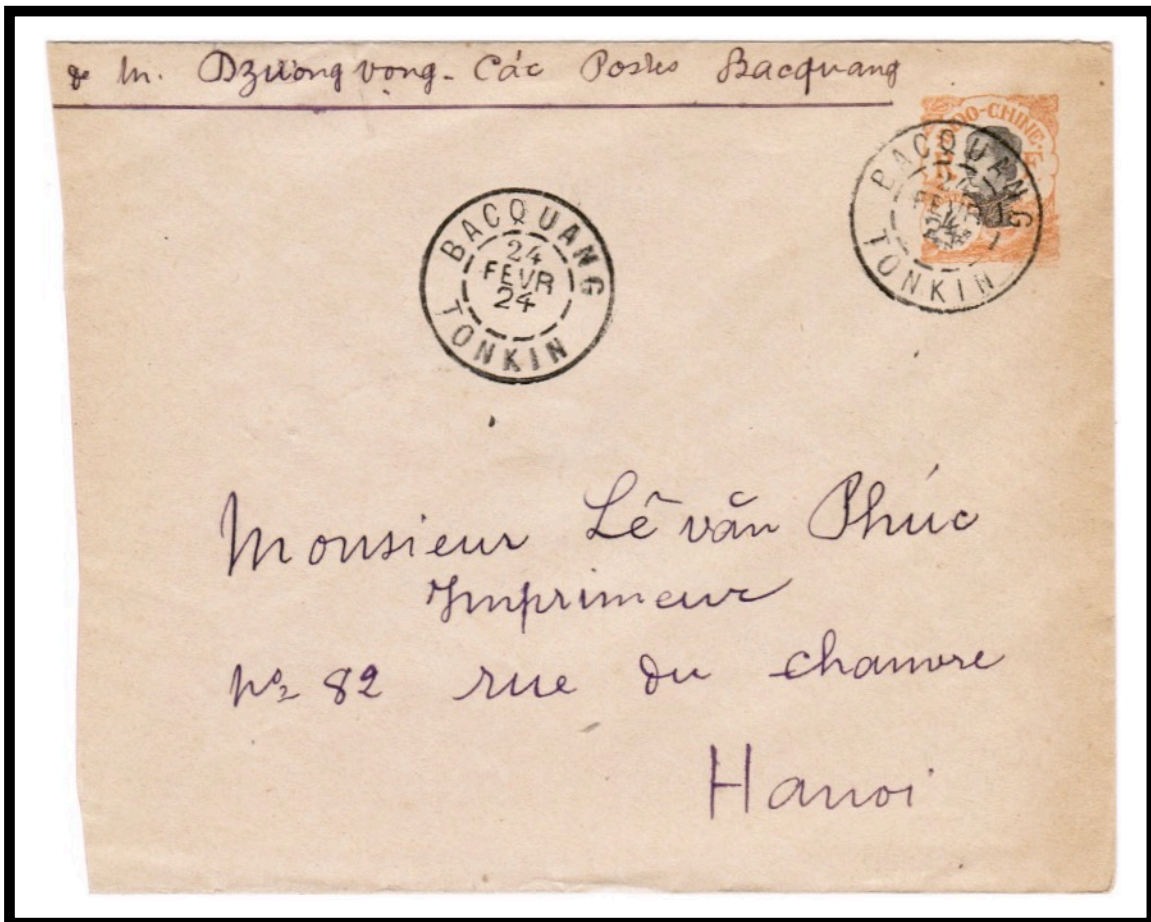 de M. Dzuong vong - Các Postes Bacquang
INDO-CHINE
BACQUANG
24
FEVR
24
TONKIN
BACQUANG
24
FEVR
24
TONKIN
Monsieur Lê văn Phúc
Imprimeur
No 82 rue du chanvre
Hanoi